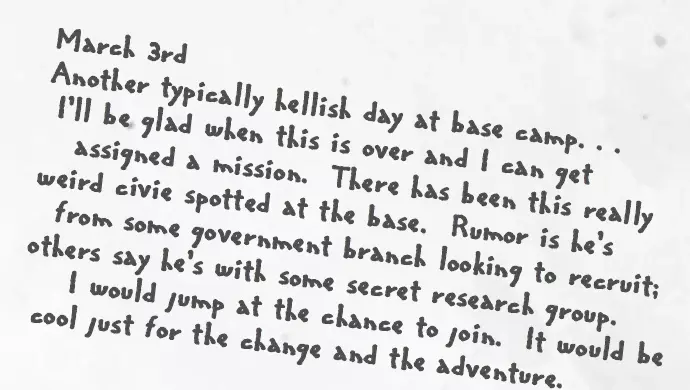 March 3rd
Another typically hellish day at base camp. . .
I'll be glad when this is over and I can get
assigned a mission. There has been this really
weird civie spotted at the base. Rumor is he's
from some government branch looking to recruit;
others say he's with some secret research group.
I would jump at the chance to join. It would be
cool just for the change and the adventure.